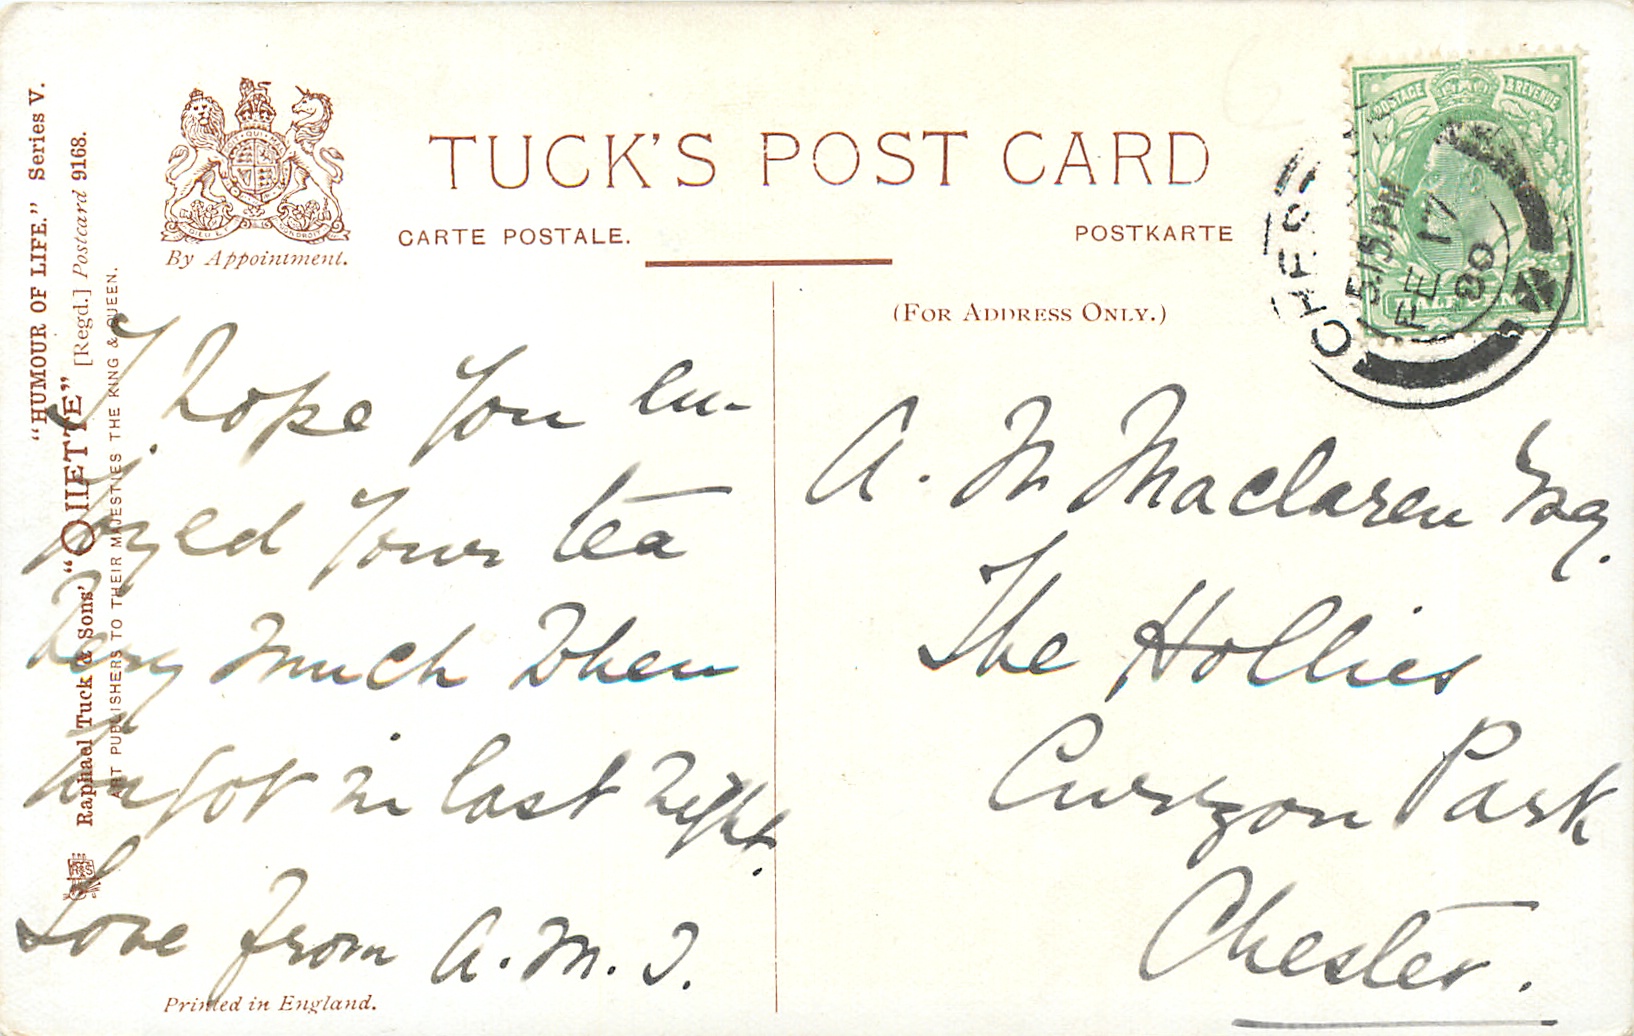 "HUMOUR OF LIFE." Series V.
Raphael Tuck & Sons' "OILETTE" [Regd.] Postcard 9168.
ART PUBLISHERS TO THEIR MAJESTIES THE KING & QUEEN.
By Appointment.
TUCK'S POST CARD
CARTE POSTALE.
POSTKARTE
(FOR ADDRESS ONLY.)
POSTAGE & REVENUE
HALFPENNY
CHESTER
5.15 PM
FE 17
I hope you en-
joyed your tea
very much when
you got in last night.
Love from A.M.J.
A. M Maclaren Esq.
The Hollies
Curzon Park
Chester.
Printed in England.